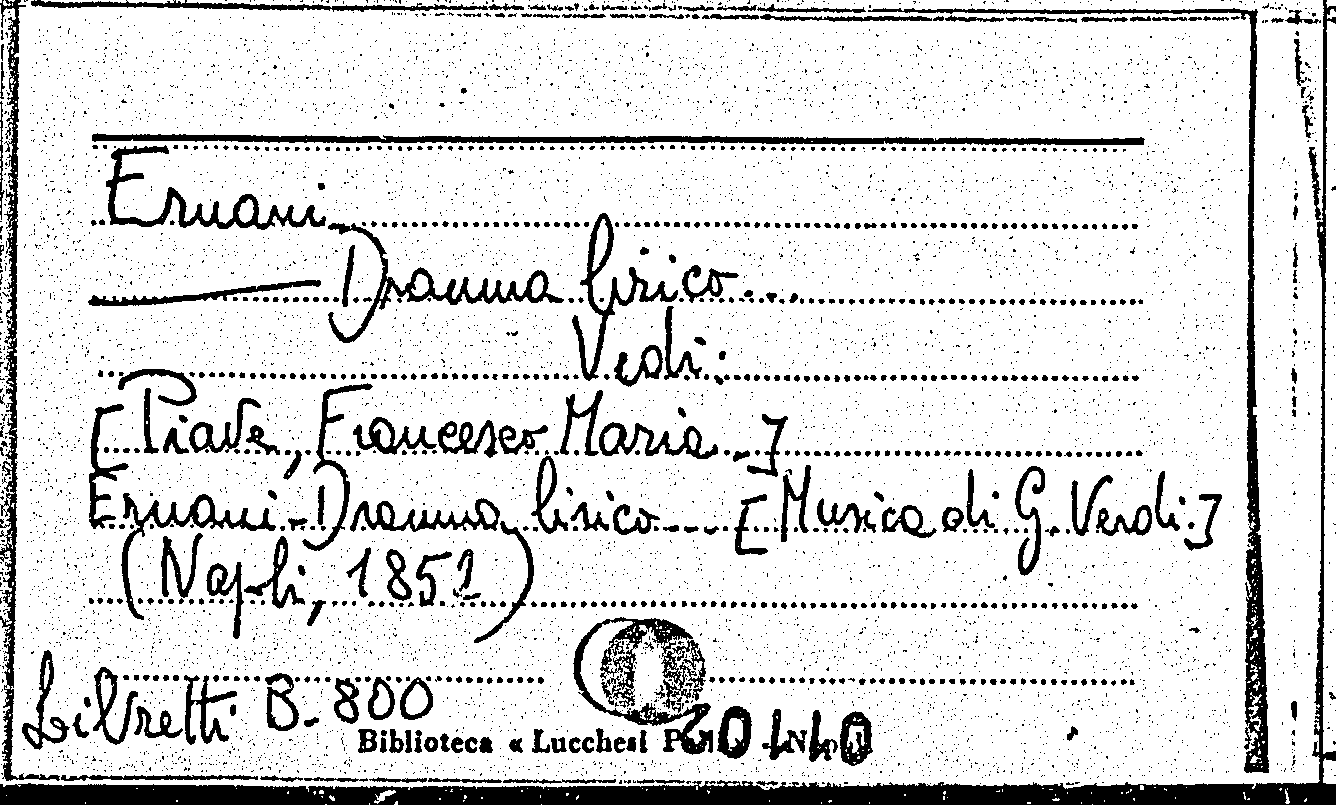 Ernani.
Dramma lirico...
Vedi:
[Piave, Francesco Maria..]
Ernani-Dramma lirico... [Musica di G. Verdi.]
(Napoli, 1852)
Libretti B. 800
Biblioteca « Lucchesi